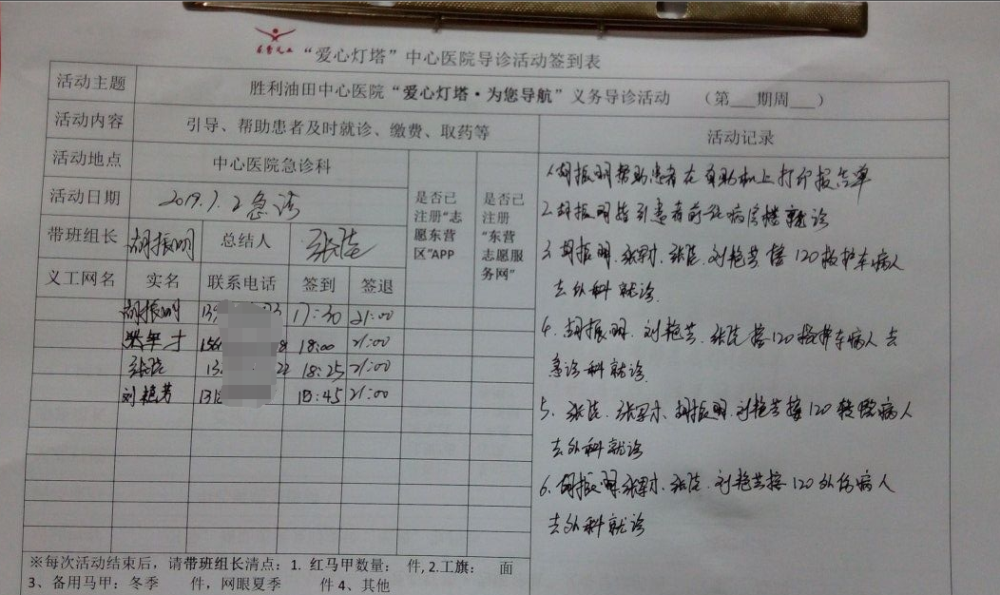 “爱心灯塔”中心医院导诊活动签到表
活动主题 胜利油田中心医院“爱心灯塔·为您导航”义务导诊活动 （第___期周___）
活动内容 引导、帮助患者及时就诊、缴费、取药等 活动记录
活动地点 中心医院急诊科 是否已注册“志愿东营区”APP 是否已注册“东营志愿服务网”
活动日期 2019.7.2急诊
带班组长 胡振明 总结人
义工网名 实名 联系电话 签到 签退
胡振明 17:30 21:00
18:00 21:00
18:25 21:00
刘艳芳 18:45 21:00
1.胡振明帮助患者在自助机上打印报告单
2.胡振明指引患者前往病房楼就诊
3.胡振明.刘艳芳接120救护车病人
去外科就诊.
4.胡振明.刘艳芳.接120救护车病人去
急诊科就诊.
5.胡振明.刘艳芳接120转院病人
去外科就诊
6.胡振明.刘艳芳接120外伤病人
去外科就诊
※每次活动结束后，请带班组长清点：1. 红马甲数量： 件,2.工旗： 面
3、备用马甲：冬季 件，网眼夏季 件 4、其他